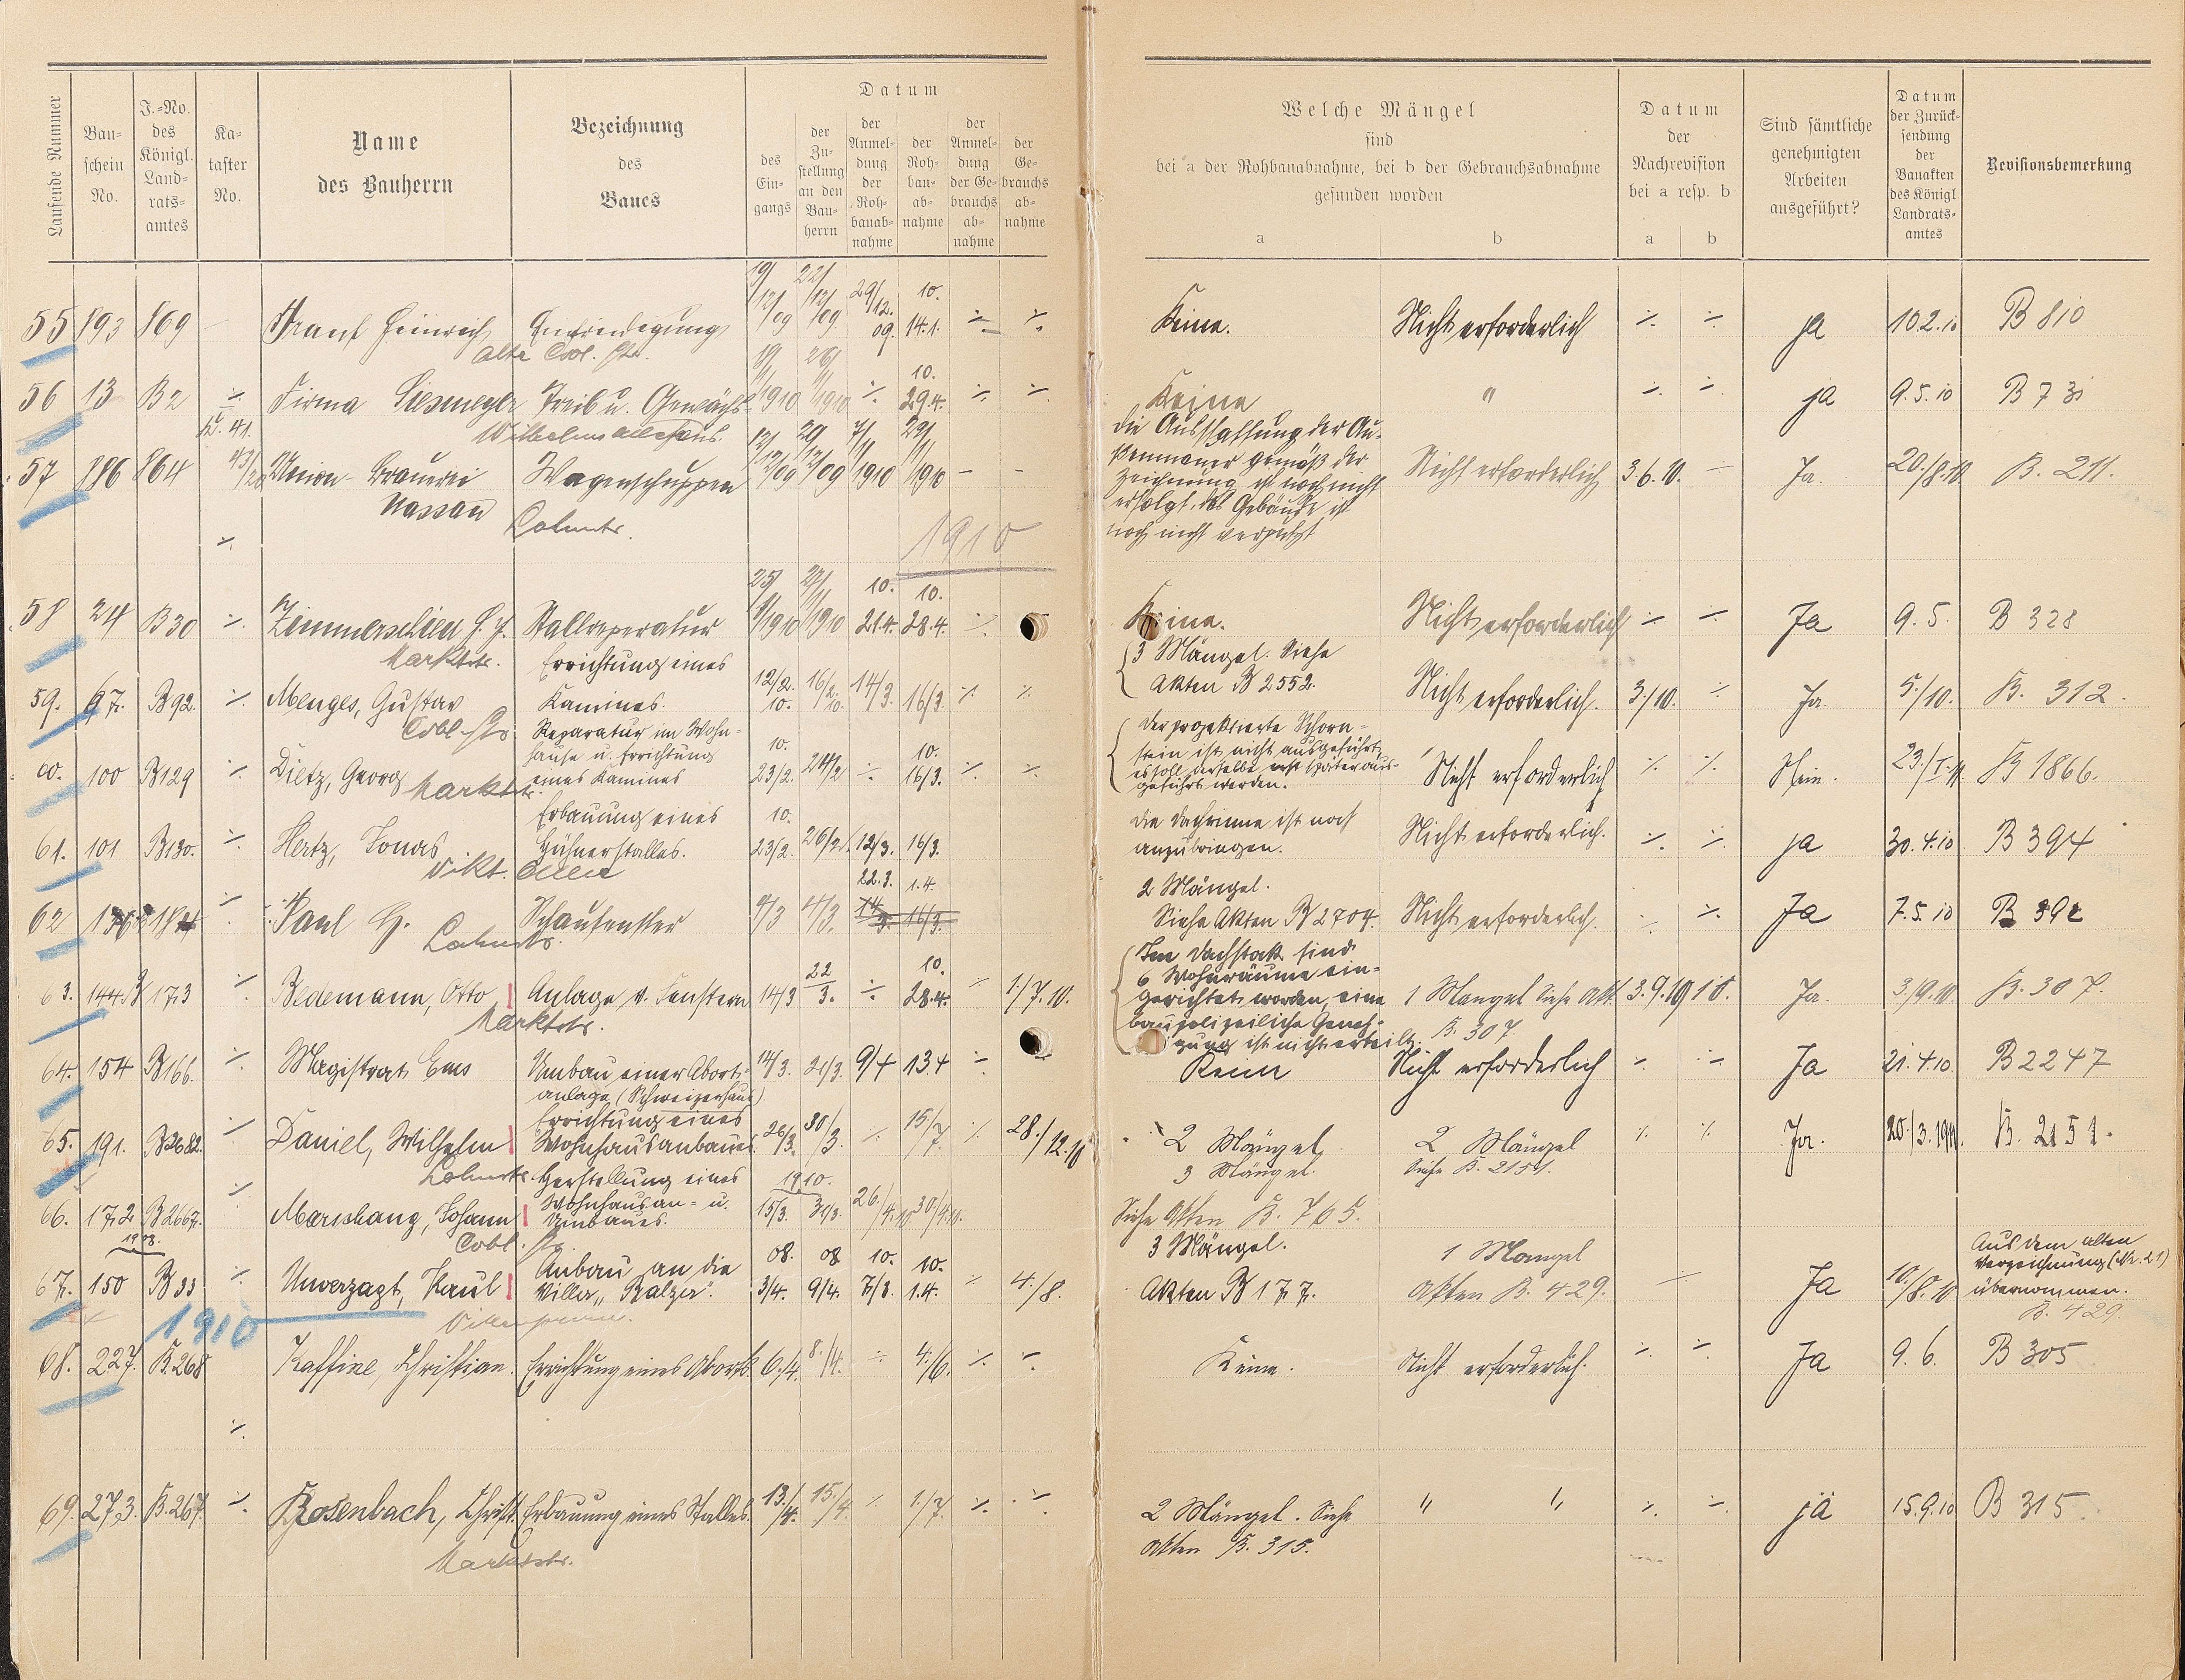 Laufende Nummer
Bau-
schein
No.
J.-No.
des
Königl.
Land-
rats-
amtes
Ka-
taster
No.
Name
des Bauherrn
Bezeichnung
des
Baues
Datum
des
Ein-
gangs
der
Zu-
stellung
an den
Bau-
herrn
der
Anmel-
dung
der
Roh-
bauab-
nahme
der
Roh-
bau-
ab-
nahme
der
Anmel-
dung
der Ge-
brauchs
ab-
nahme
der
Ge-
brauchs
ab-
nahme
Welche Mängel
sind
bei a der Rohbauabnahme, bei b der Gebrauchsabnahme
gefunden worden
a b
Datum
der
Nachrevision
bei a resp. b
a b
Sind sämtliche
genehmigten
Arbeiten
ausgeführt?
Datum
der Zurück-
sendung
der
Bauakten
des Königl
Landrats-
amtes
Revisionsbemerkung
55 893 869 Heinrich Einfriedigung 19/12/09 22/12/09 29/12.09. 10. 14.1. ./. ./. Keine. Nicht erforderlich ./. ./. ja 10.2.10 B 810
Alte Cobl. Str.
56 13 B2 ./. Firma Siesmeyer Treib u. Gewächs- 1910 1910 ./. 10. 29.4. ./. ./. Keine " ./. ./. ja 9.5.10 B 73
Wilhelmsallee
57 886 864 Union-Brauerei Wagenschuppen 12/12/09 29/12/09 7/1 1910 29/1 1910 - - Die Ausschaffung der Au-
ßenmauer gemäß der
Zeichnung ist noch nicht
erfolgt, das Gebäude ist
noch nicht verputzt
Nicht erforderlich 3.6.10. Ja. 20./8.10 B. 211.
Nassau
Lahnstr.
./.
1910
58 24 B30 ./. Zimmerschied H. J. Stallreparatur 25/1 1910 27/1 1910 10. 21.4. 10. 28.4. ./. Keine. Nicht erforderlich ./. ./. Ja 9.5. B 328
Marktstr.
59. 67. B92. ./. Menges, Gustav Errichtung eines
Kamines. 12/2. 10. 16/2. 10. 14/3. 16/3. ./. ./. 3 Mängel. Siehe
Akten B 2552. Nicht erforderlich. 3/10. ./. Ja. 5/10. B. 312.
Cobl. Str.
60. 100 B129 ./. Dietz, Georg Reparatur im Wohn-
hause u. Errichtung
eines Kamines 10. 23/2. 24/2 ./. 10. 16/3. ./. ./. Der projektierte Schorn-
stein ist nicht ausgeführt,
es soll derselbe erst später aus-
geführt werden.
Nicht erforderlich ./. ./. Nein. 23./I.11 B 1866.
Marktstr.
61. 101 B130. ./. Hertz, Jonas Erbauung eines
Hühnerstalles. 10. 23/2. 26/2. 12/3. 16/3. Die Dachrinne ist noch
anzubringen. Nicht erforderlich. ./. ./. ja 30.4.10 B 394
Vikt. Allee
62 184 ./. Paul H. Schaufenster 4/3 4/3. 22.3. 1.4. 14/3. 16/3. 2 Mängel.
Siehe Akten B 2704. Nicht erforderlich. ./. ./. Ja 7.5.10 B 392
Lahnstr.
63. 144 B 173 ./. Bedemann, Otto Anlage v. Fenstern 14/3 22/3. ./. 10. 28.4. ./. 1./7.10. Im Dachstock sind
6 Wohnräume ein-
gerichtet worden, eine
baupolizeiliche Geneh-
gung ist nicht erteilt.
1 Mangel Siehe Akt.
B. 307. 3.9.1910. Ja. 3/9.10 B. 307.
Marktstr.
64. 154 B166. ./. Magistrat Ems Umbau einer Abort-
anlage (Schweizerhaus) 14/3. 21/3. 9/4 13.4 ./. ./. Keine Nicht erforderlich ./. ./. Ja 21.4.10. B 2247
65. 191. B2682. ./. Daniel, Wilhelm Errichtung eines
Wohnhausanbaues. 26/3. 30/3. ./. 15/7. ./. 28./12.10 2 Mängel 2 Mängel
Siehe B. 2151. ./. ./. Ja. 20./3.1911. B. 2151.
Lahnstr.
66. 172 B2667. ./. Marschang, Johann Herstellung eines
Wohnhausan- u.
Umbaues. 1910. 15/3. 31/3. 26./4.10 30/4.10. 3 Mängel.
Siehe Akten B. 765.
Cobl. Str.
1908.
67. 150 B33 ./. Unverzagt, Karl Anbau an die
Villa „Balzer". 08. 3/4. 08 9/4. 10. 7/3. 10. 1.4. ./. 4./8. 3 Mängel.
Akten B 177. 1 Mangel
Akten B. 429. ./. Ja 10./8.10 Aus dem alten
Verzeichnung (Nr. 21)
übernommen.
B. 429.
1910
68. 227. B.268 Kaffine, Christian. Errichtung eines Aborts. 6./4. 8./4. ./. 4./6. ./. ./. Keine. Nicht erforderlich. ./. ./. Ja 9.6. B 305
./.
69. 273. B.267. ./. Rosenbach, Christ. Erbauung eines Stalles. 13./4. 15./4. ./. 1./7. ./. ./. 2 Mängel. Siehe
Akten B. 315. " " ./. ./. ja 15.9.10 B 315
Marktstr.